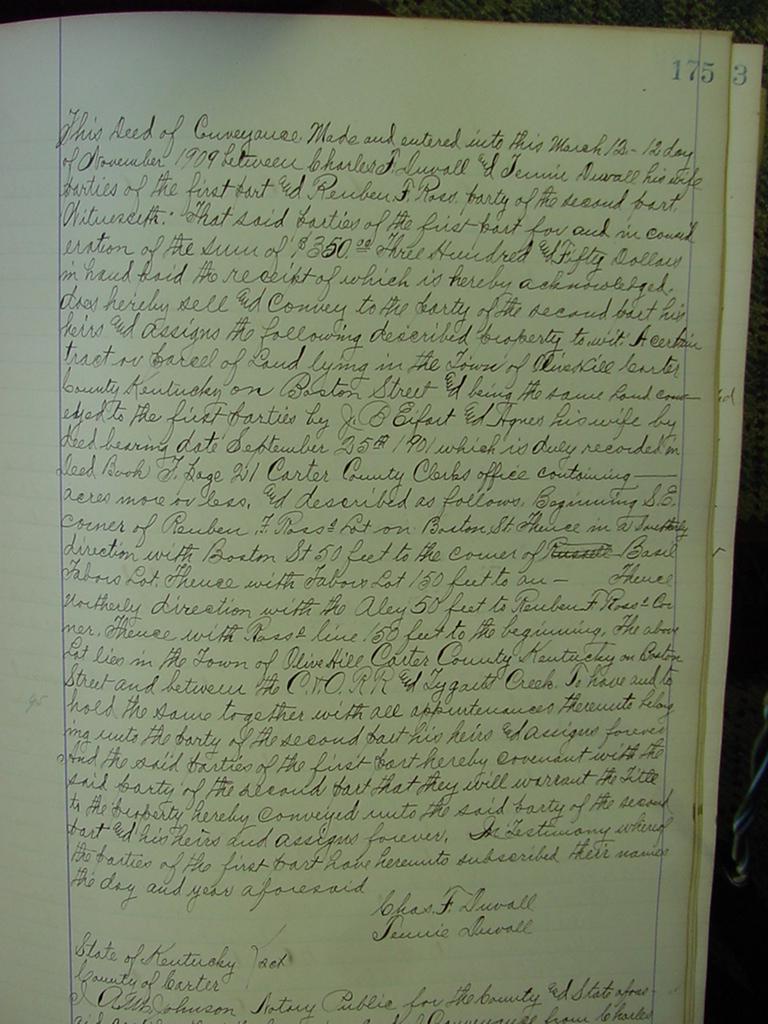 175 3
This Deed of Conveyance Made and entered into this March 12 - 12 day
of November 1909 between Charles F. Duvall & Jennie Duvall his wife
parties of the first part & Reuben F. Ross party of the second part.
Witnesseth: That said parties of the first part for and in consid
eration of the sum of $350.00 Three Hundred & Fifty Dollars
in hand paid the receipt of which is hereby acknowledged.
does hereby sell & Convey to the party of the second part his
heirs & assigns the following described property to wit: A certain
tract or parcel of Land lying in the Town of Olive Hill Carter
County Kentucky on Boston Street & being the same Land conv
eyed to the first parties by J. B Eifort & Agnes his wife by
deed bearing date September 25th 1901 which is duly recorded in
Deed Book J. Page 21 Carter County Clerks office containing
acres more or less, & described as follows. Beginning S.E.
corner of Reuben F Ross Lot on Boston St Thence in a Southerly
direction with Boston St 50 feet to the corner of Russell Basil
Tabors Lot. Thence with Tabors Lot 150 feet to an — Thence
Northerly direction with the Aley 50 feet to Reuben F Ross Cor
ner. Thence with Ross line 150 feet to the beginning. The above
Lot lies in the Town of Olive Hill Carter County Kentucky on Boston
Street and between the C & O. R R & Tygarts Creek. To have and to
hold the same together with all appurtenances thereunto belong
ing unto the party of the second part his heirs & assigns forever
And the said parties of the first part hereby covenant with the
said party of the second part that they will warrant the Title
to the property hereby conveyed unto the said party of the second
part & his heirs and assigns forever. In Testimony whereof
the parties of the first part have hereunto subscribed their names
the day and year aforesaid
Chas. F. Duvall
Jennie Duvall
State of Kentucky } sct
County of Carter
I Johnson Notary Public for the County & State afore-
Conveyance from Charles